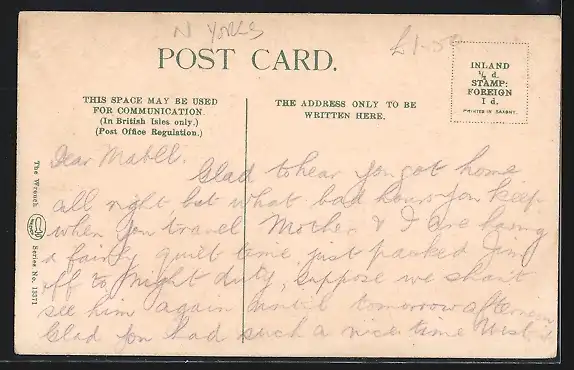 N YORKS
£1-50
POST CARD.
THIS SPACE MAY BE USED
FOR COMMUNICATION.
(In British Isles only.)
(Post Office Regulation.)
THE ADDRESS ONLY TO BE
WRITTEN HERE.
INLAND
½ d.
STAMP:
FOREIGN
1 d.
PRINTED IN SAXONY.
The Wrench
Series No. 13371
Dear Mabel.
Glad to hear you got home
all right but what bad hours you keep
when you travel Mother & I are having
a fairly quiet time just packed Jim
off to night duty, suppose we shant
see him again until tomorrow afternoon
Glad you had such a nice time